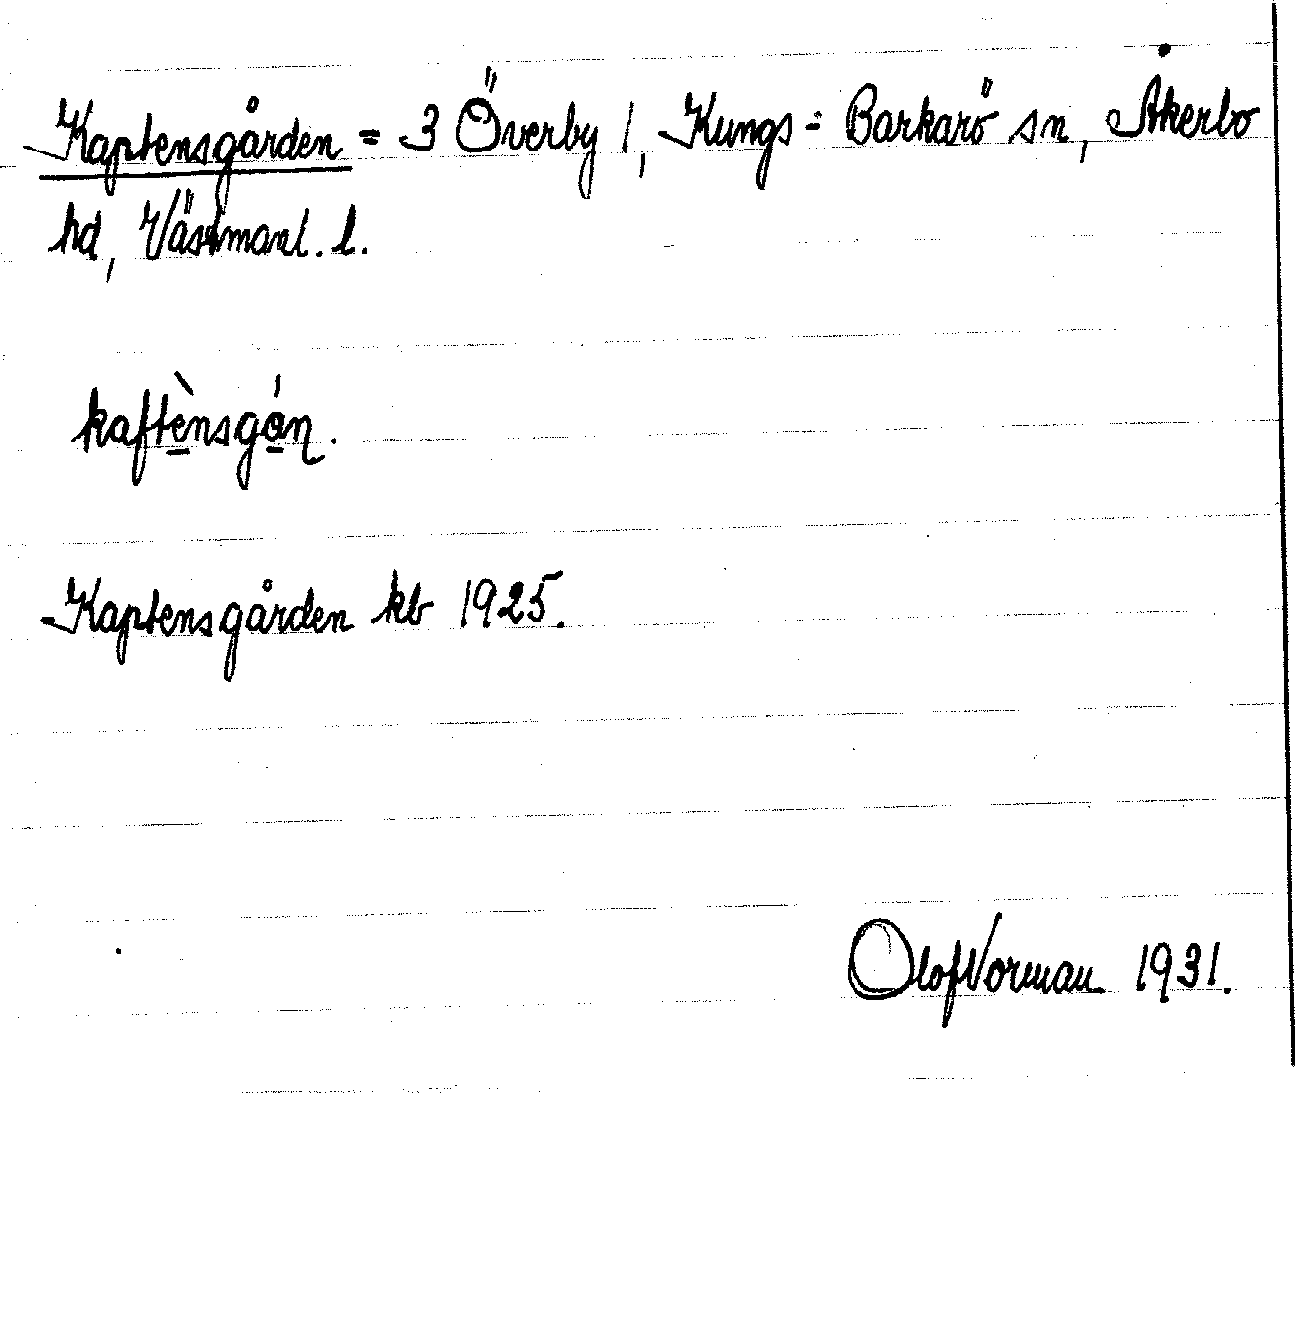 Kaptensgården = 3 Överby 1, Kungs-Barkarö sn, Åkerbo
hd, Västmanl. l.
kaftè̱nsgó̱ɳ.
Kaptensgården kb 1925.
Olof Vorman 1931.